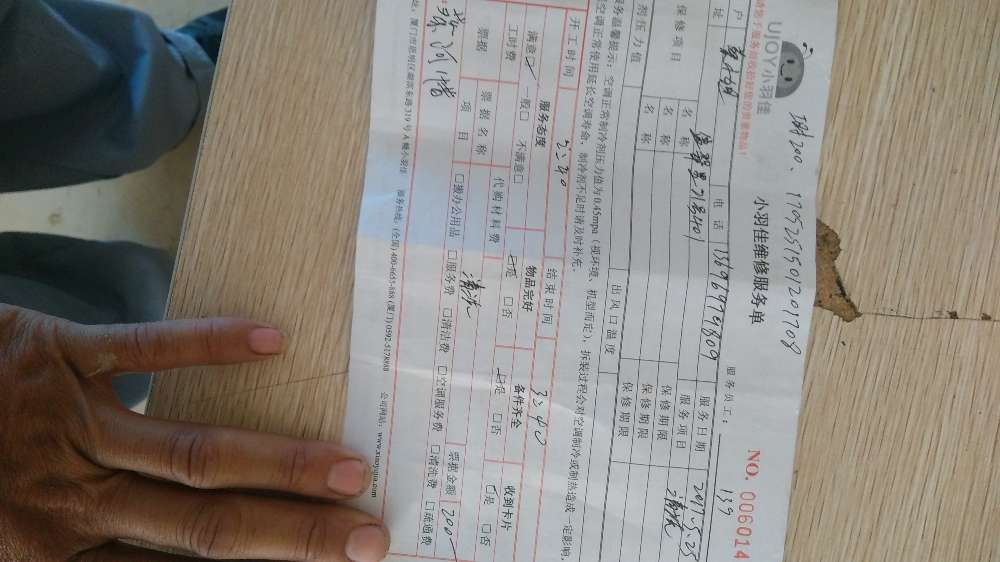 UJOY小羽佳
1705251501201708
小羽佳维修服务单
NO. 006014
服务员工: 139
户
电话 13696979809
服务日期 2017.5.25
址
号401
服务项目 清洗
保修项目
名称
保修期限
名称
保修期限
名称
保修期限
剂压力值
出风口温度
服务温馨提示:空调正常制冷剂压力值为0.45mpa(视环境、机型而定),拆装过程会对空调制冷或制热造成一定影响,
空调正常使用延长空调寿命,制冷剂不足时请及时补充。
开工时间 2:40
结束时间 3:40
服务态度
物品完好
备件齐全
收到卡片
满意☑ 一般□ 不满意□
☑是 □否
☑是 □否
☑是 □否
工时费
代购材料费
票据
票据名称
清洗
票据金额 200
项目
□搬办公用品 □服务费 □清洁费 □空调服务费 □清洗费 □疏通费
厦门市思明区湖滨东路319号A幢小羽佳 服务热线:(全国)400-6655-888 (厦门)0592-5178888 公司网站:www.xiaoyujia.com